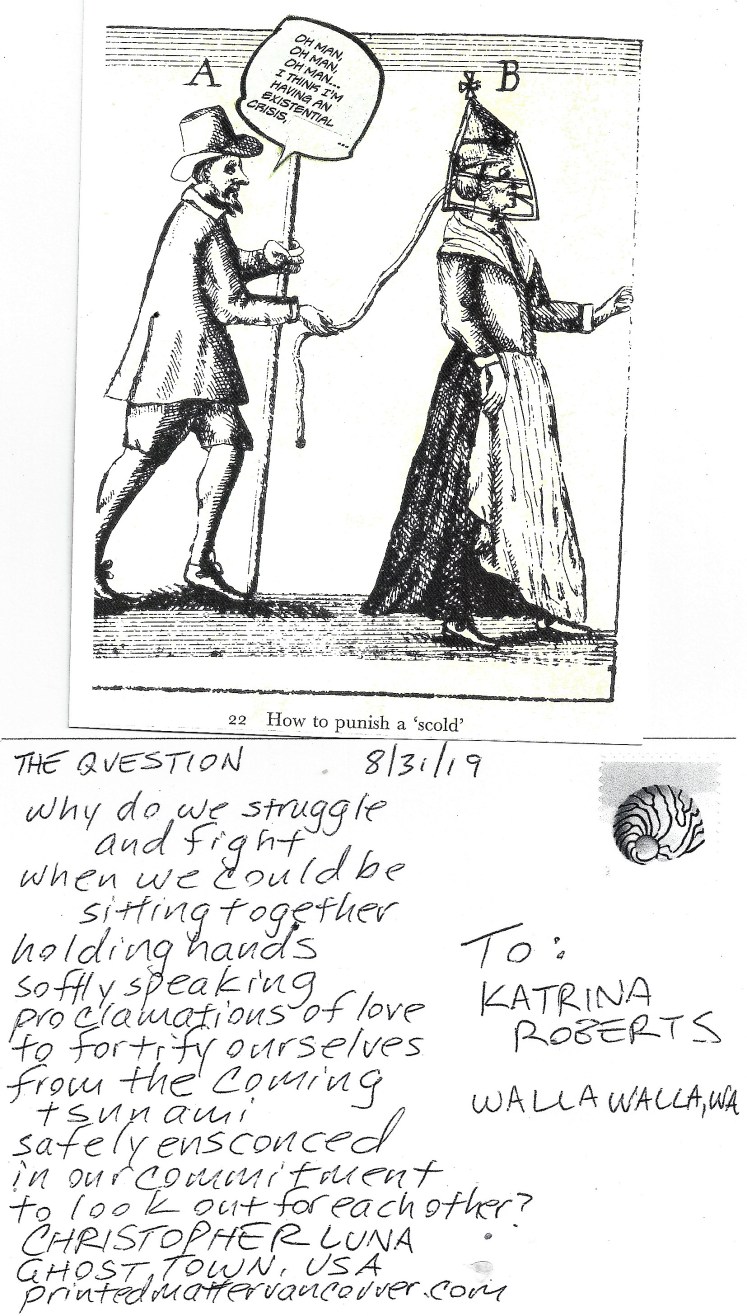 A
B
OH MAN,
OH MAN,
OH MAN...
I THINK I'M
HAVING AN
EXISTENTIAL
CRISIS,
...
22 How to punish a 'scold'
THE QUESTION 8/31/19
why do we struggle
and fight
when we could be
sitting together
holding hands
softly speaking
proclamations of love
to fortify ourselves
from the coming
tsunami
safely ensconced
in our commitment
to look out for each other?
CHRISTOPHER LUNA
GHOST TOWN, USA
printedmattervancouver.com
To:
KATRINA
ROBERTS
WALLA WALLA, WA